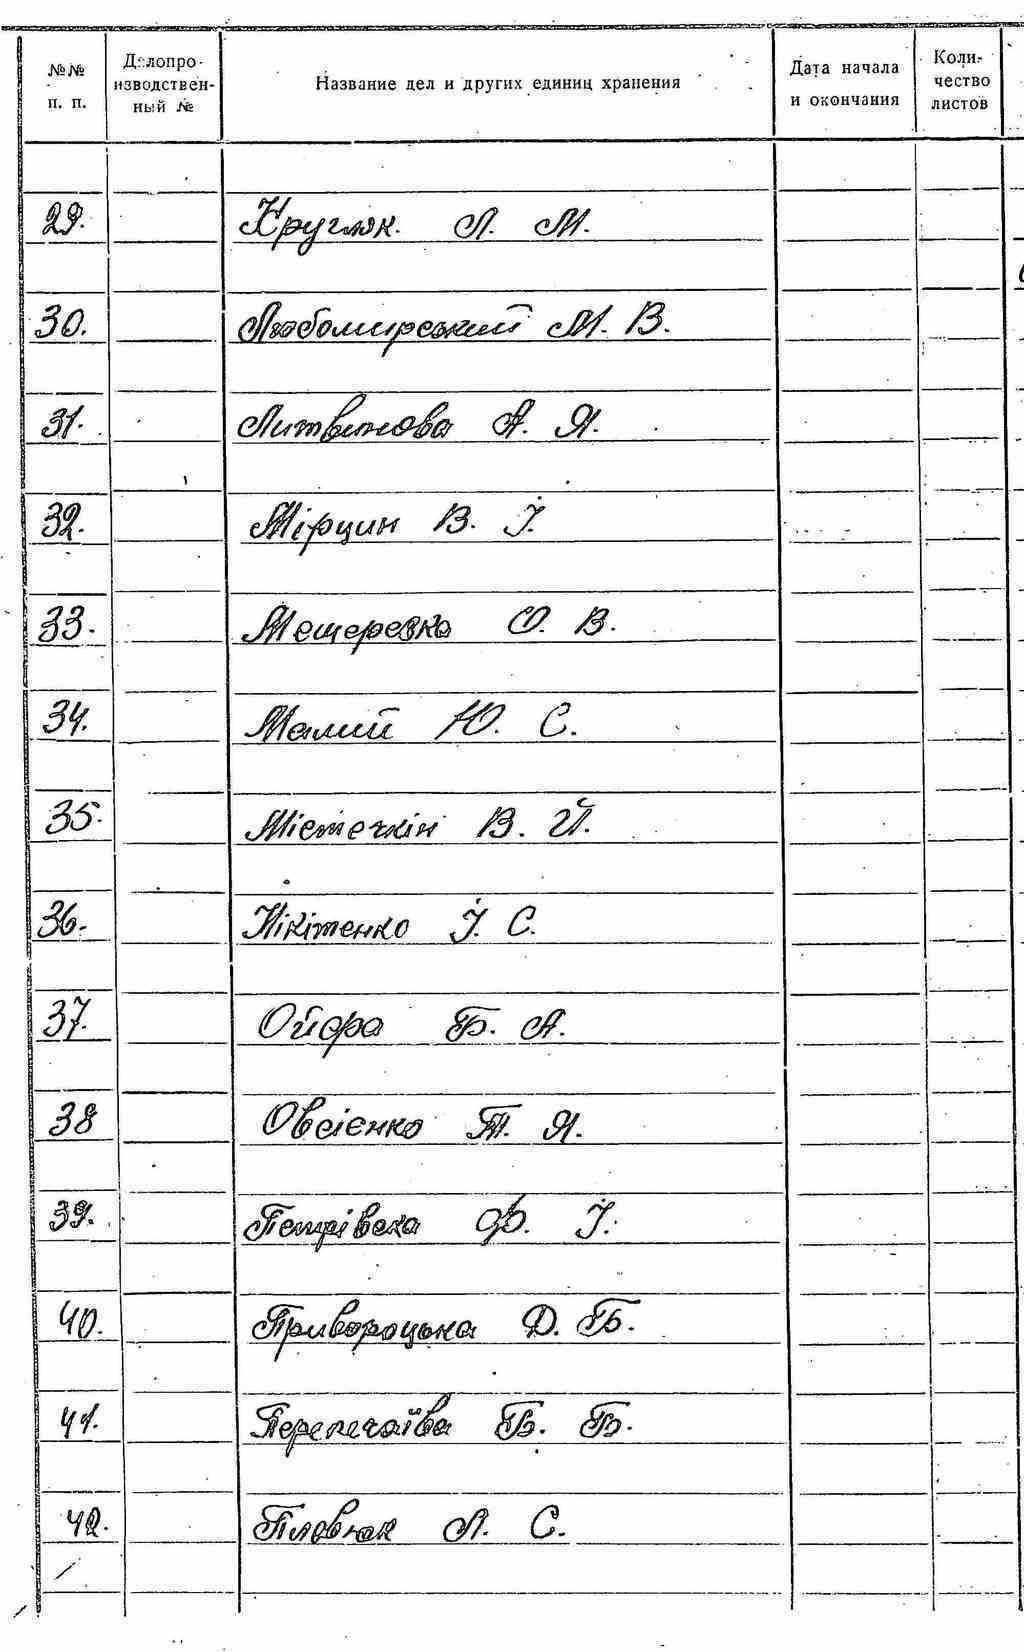 №№ п. п. Делопроизводственный № Название дел и других единиц хранения Дата начала и окончания Количество листов
29. Кругляк Л. М.
30. Любомирський М. В.
31. Литвинова А. Я.
32. Мірцин В. І.
33. Мещерезко О. В.
34. Малий Ю. С.
35. Містечкін В. Й.
36. Нікітенко І. С.
37. Ойфра Б. А.
38 Овсієнко Т. Я.
39. Петрівска Ф. І.
40. Привороцька Д. Б.
41. Перепечаїва Б. Б.
42. Пловнюк Л. С.